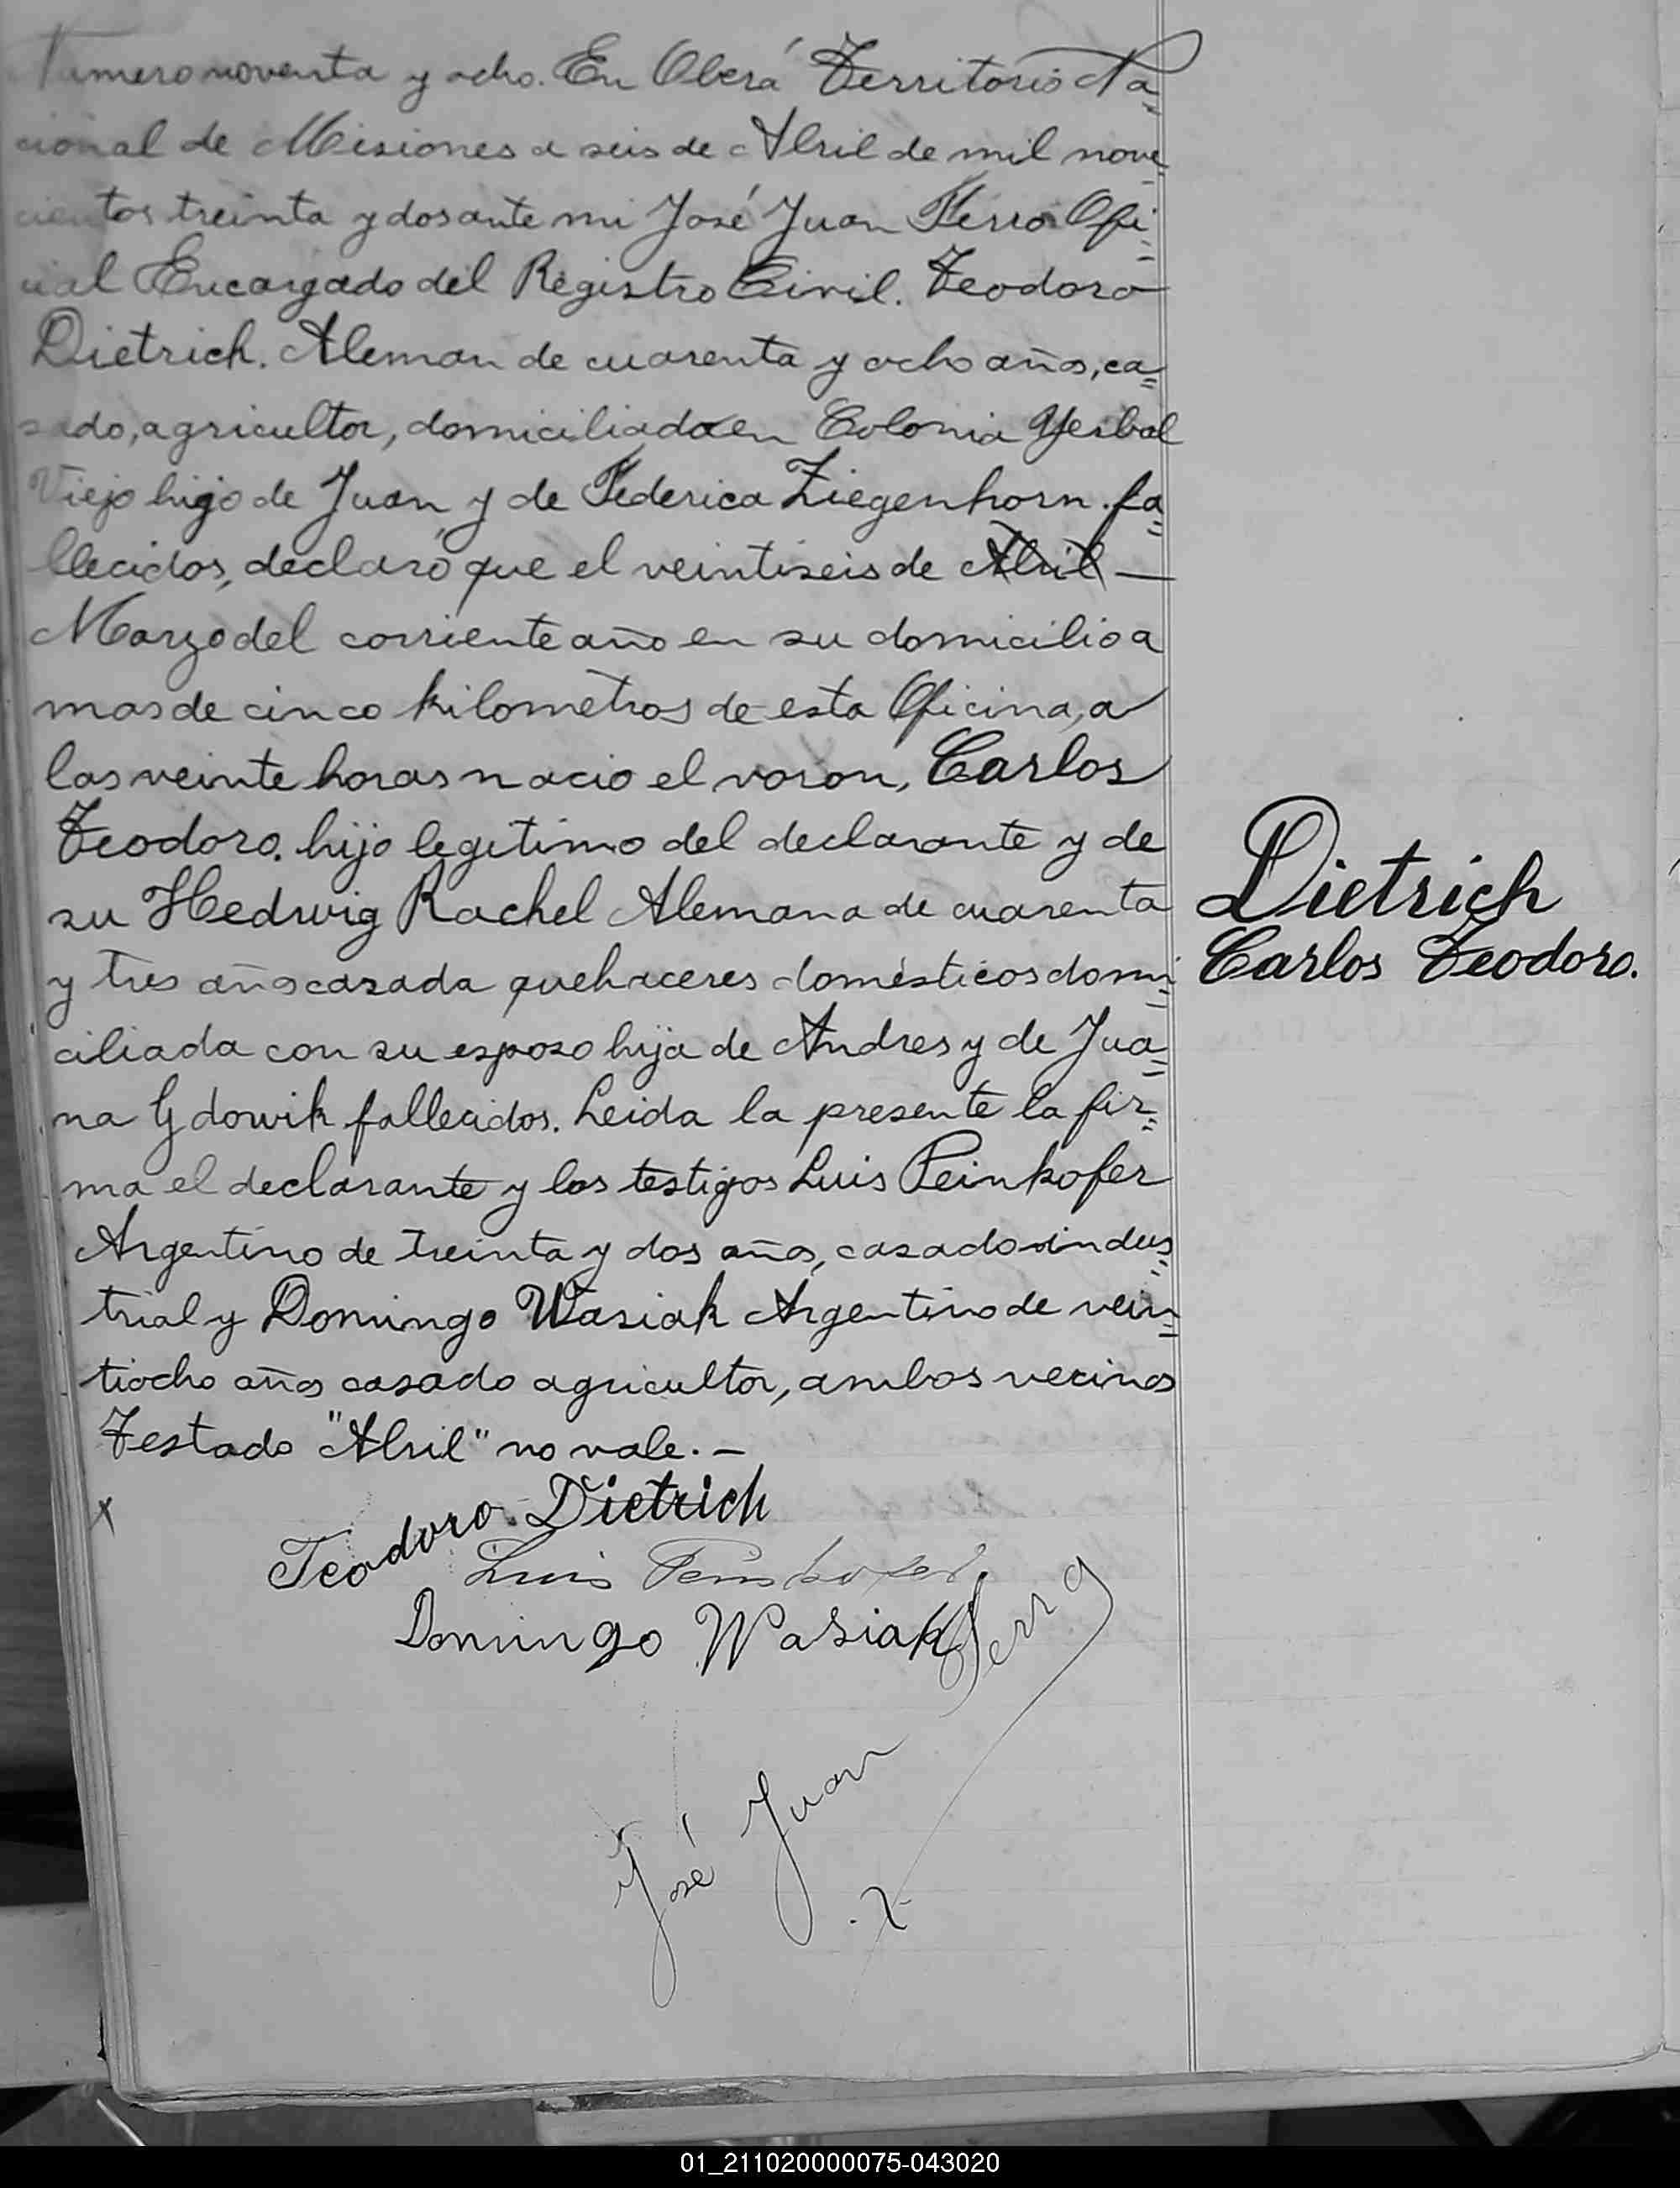 Numero noventa y ocho. En Oberá Territorio Na=
cional de Misiones a seis de Abril de mil nove=
cientos treinta y dos ante mi José Juan Ferro Ofi=
cial Encargado del Registro Civil. Teodoro
Dietrich. Aleman de cuarenta y ocho años, ca=
sado, agricultor, domiciliado en Colonia Yerbal
Viejo hijo de Juan y de Federica Ziegenhorn. fa=
llecidos, declaró que el veintiseis de Abril —
Marzo del corriente año en su domicilio a
mas de cinco kilometros de esta Oficina, a
las veinte horas nacio el varon, Carlos
Teodoro. hijo legitimo del declarante y de
su Hedwig Rachel Alemana de cuarenta
y tres años casada quehaceres domésticos domi=
ciliada con su esposo hija de Andres y de Jua=
na Gdowik fallecidos. Leida la presente la fir=
ma el declarante y los testigos Luis Peinkofer
Argentino de treinta y dos años, casado indus=
trial y Domingo Wasiak Argentino de vein=
tiocho años casado agricultor, ambos vecinos
Testado "Abril" no vale. —
Dietrich
Carlos Teodoro.
Teodoro Dietrich
Luis Peinkofer
Domingo Wasiak
José Juan Ferro
01_211020000075-043020